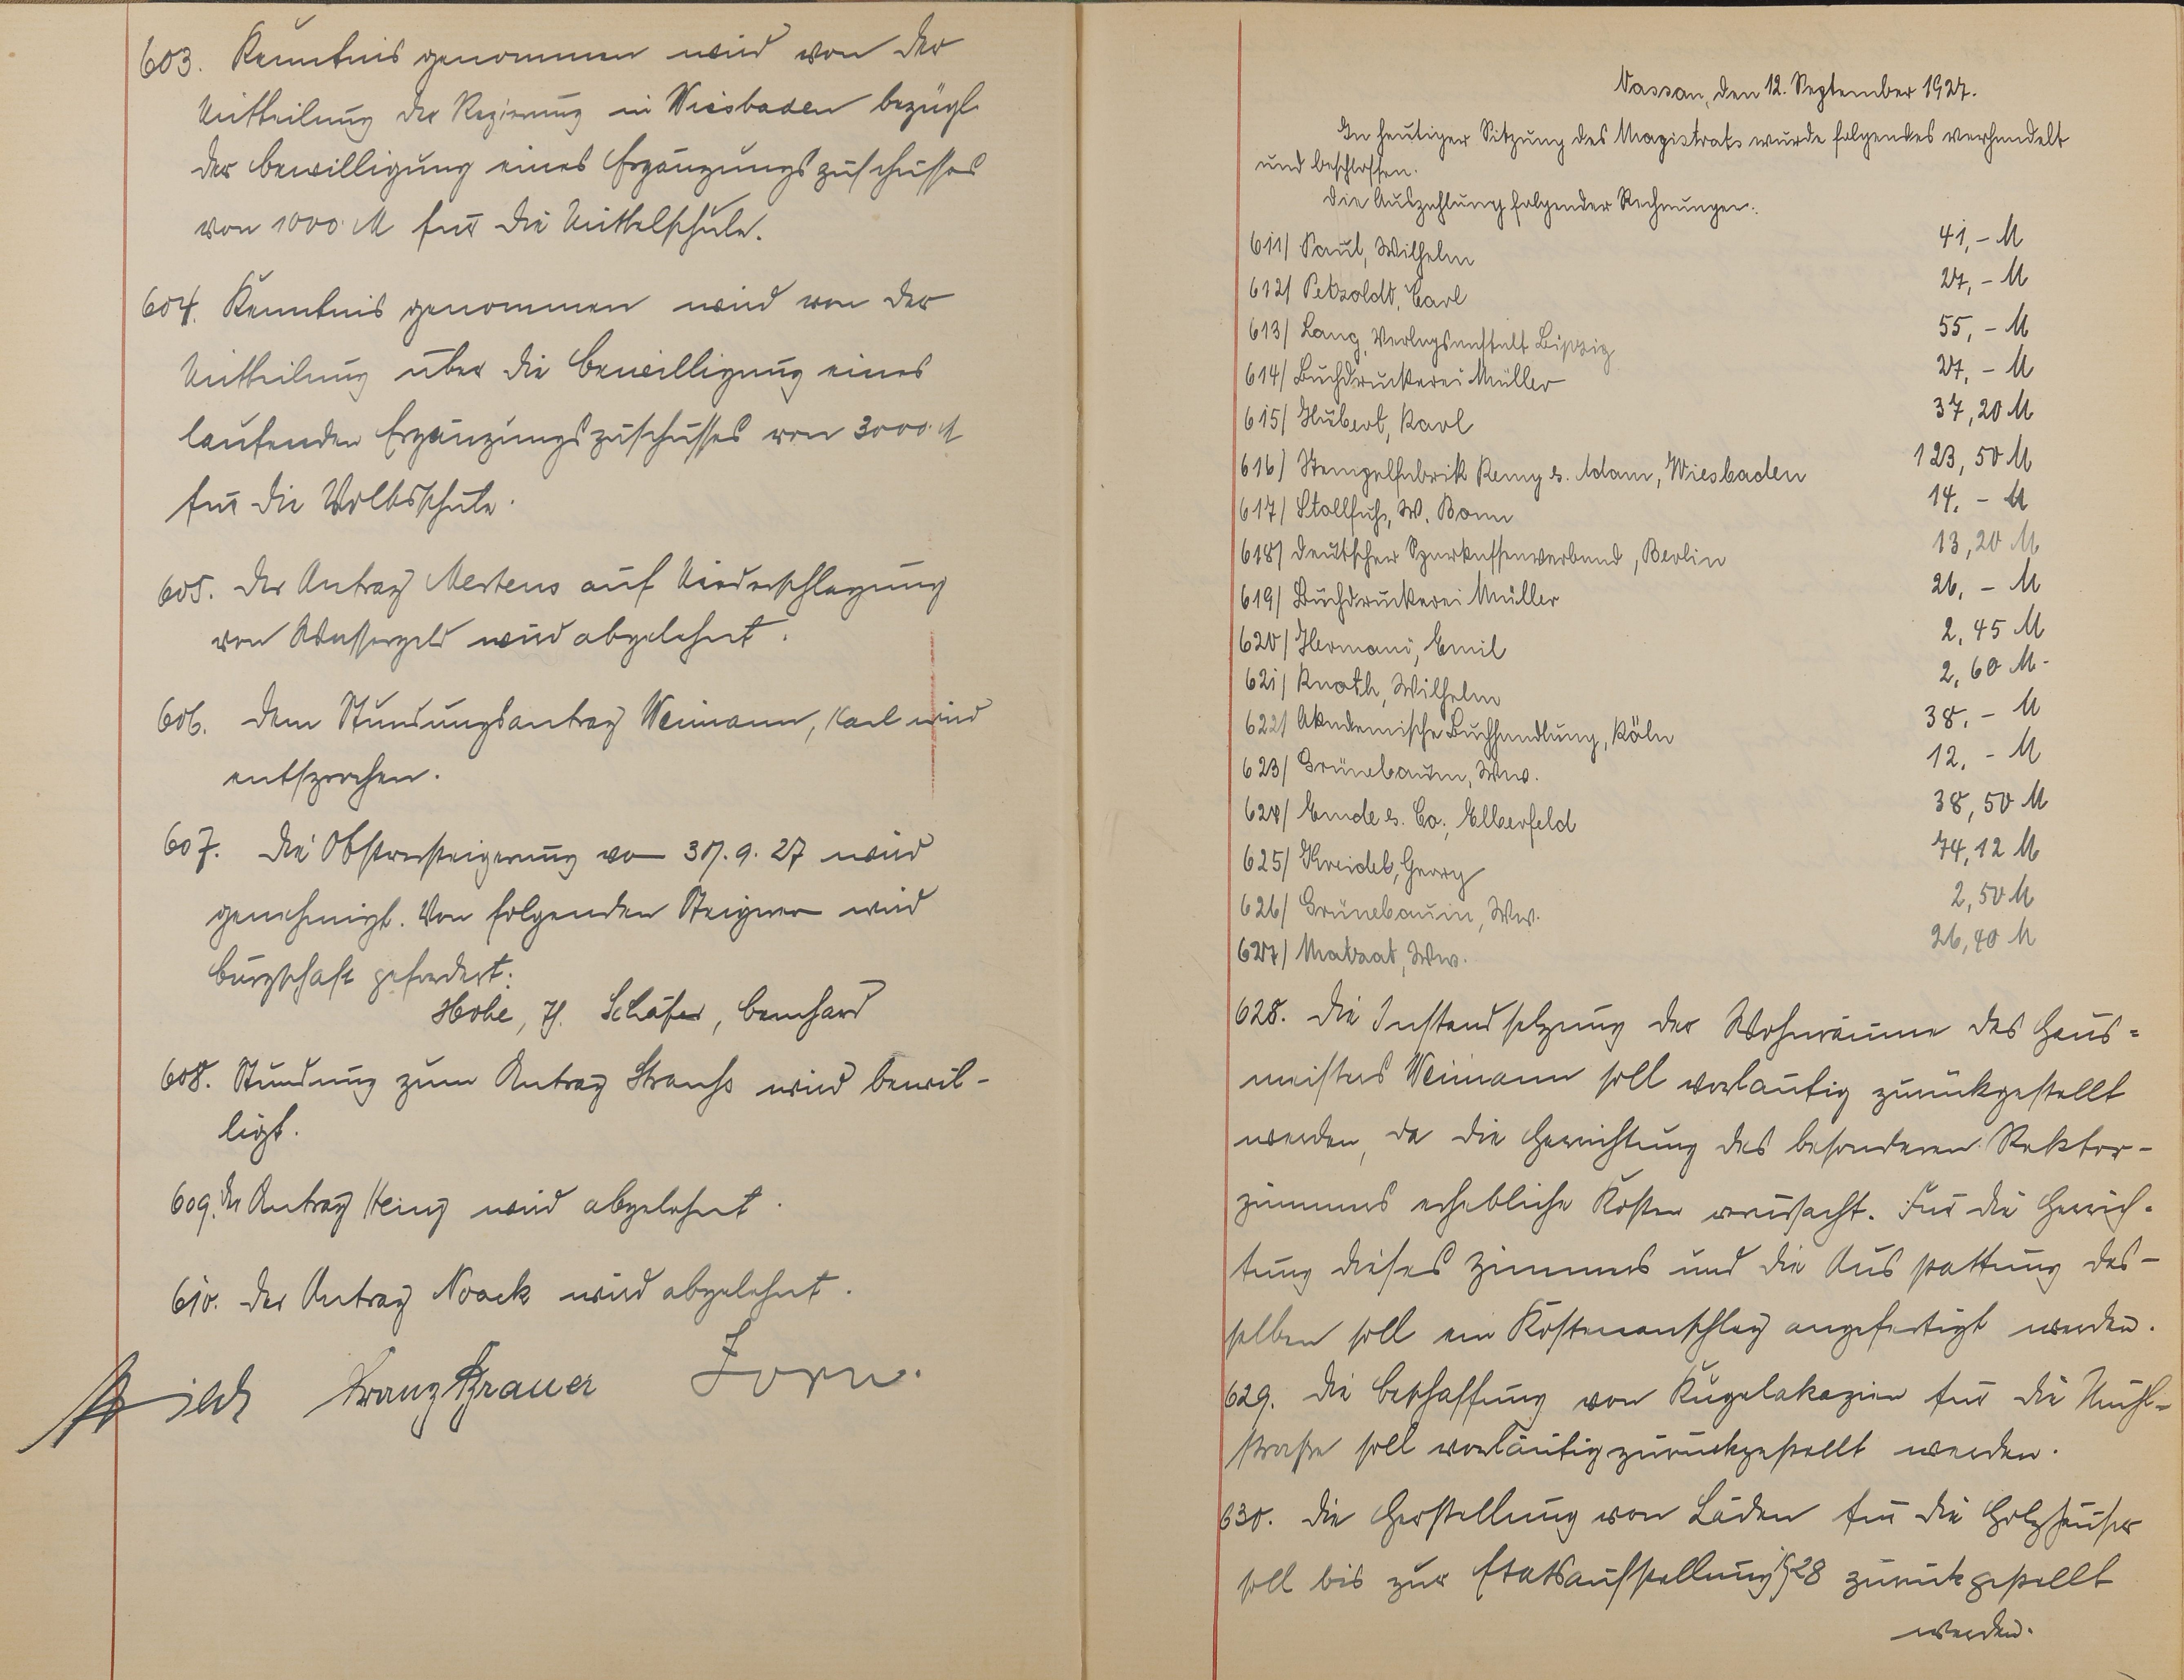 603. Kenntnis genommen wird von der
Mitteilung der Regierung in Wiesbaden bezügl.
der Bewilligung eines Ergänzungszuschusses
von 1000 M für die Mittelschule.
604. Kenntnis genommen wird von der
Mitteilung über die Bewilligung eines
laufenden Ergänzungszuschusses von 3000 M
für die Volksschule.
605. Der Antrag Mertens auf Niederschlagung
von Wassergeld wird abgelehnt.
606. Dem Stundungsantrag Weimann, Karl wird
entsprochen.
607. Die Obstversteigerung vom 9. 27 wird
genehmigt. Von folgenden Steigerer wird
Bürgschaft gefordert:
Hohe, H. Schäfer, Bernhard
608. Stundung zum Antrag Strauß wird bewil-
ligt.
609. Der Antrag Heinz wird abgelehnt.
610. Der Antrag Noack wird abgelehnt.
Franz Brauer Zorn.
Nassau, den 12. September 1927.
In heutiger Sitzung des Magistrats wurde folgendes verhandelt
und beschlossen.
Die Auszahlung folgender Rechnungen:
611/ Paul, Wilhelm 41,- M
612/ Petzoldt, Carl 27,- M
613/ Lang, Verlagsanstalt Leipzig 55,- M
614/ Buchdruckerei Müller 27,- M
615/ Hubert, Karl 37,20 M
616/ Stempelfabrik Remy & Adam, Wiesbaden 123,50 M
617/ Stollfuß, W. Bonn 14,- M
618/ Deutscher Sparkassenverband, Berlin 13,20 M
619/ Buchdruckerei Müller 26,- M
620/ Hermani, Emil 2,45 M
621/ Knoth, Wilhelm 2,60 M
622/ Akademische Buchhandlung, Köln 38,- M
623/ Grünebaum, Ww. 12,- M
624/ Emde & Co., Elberfeld 38,50 M
625/ Kreidel, Georg 74,12 M
626/ Grünebaum, Ww. 2,50 M
627/ Matzat, Ww. 26,40 M
628. Die Instandsetzung der Wohnräume des Haus=
meisters Weimann soll vorläufig zurückgestellt
werden, da die Herrichtung des besonderen Rektor-
zimmers erhebliche Kosten verursacht. Für die Herrich-
tung dieses Zimmers und die Ausstattung des-
selben soll ein Kostenanschlag angefertigt werden.
629. Die Beschaffung von Kugelakazien für die Mühl=
straße soll vorläufig zurückgestellt werden.
630. Die Herstellung von Läden für die Holzhäuser
soll bis zur Etatsaufstellung 1928 zurückgestellt
werden.